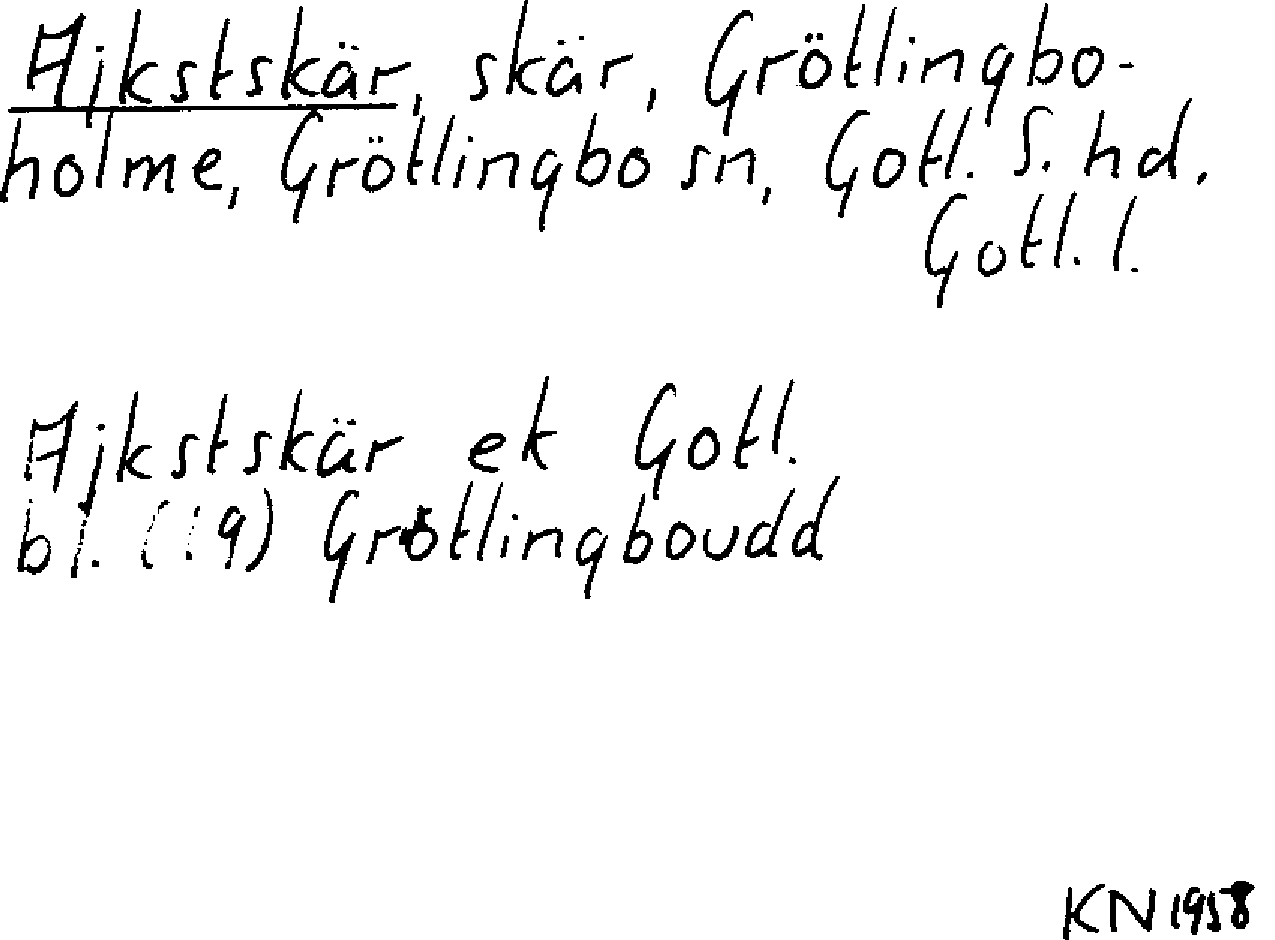 Ajkstskär, skär, Grötlingbo-
holme, Grötlingbo sn, Gotl. S. hd.
Gotl. l.
Ajkstskär ek Gotl.
bl. (19) Grötlingboudd
KN 1958